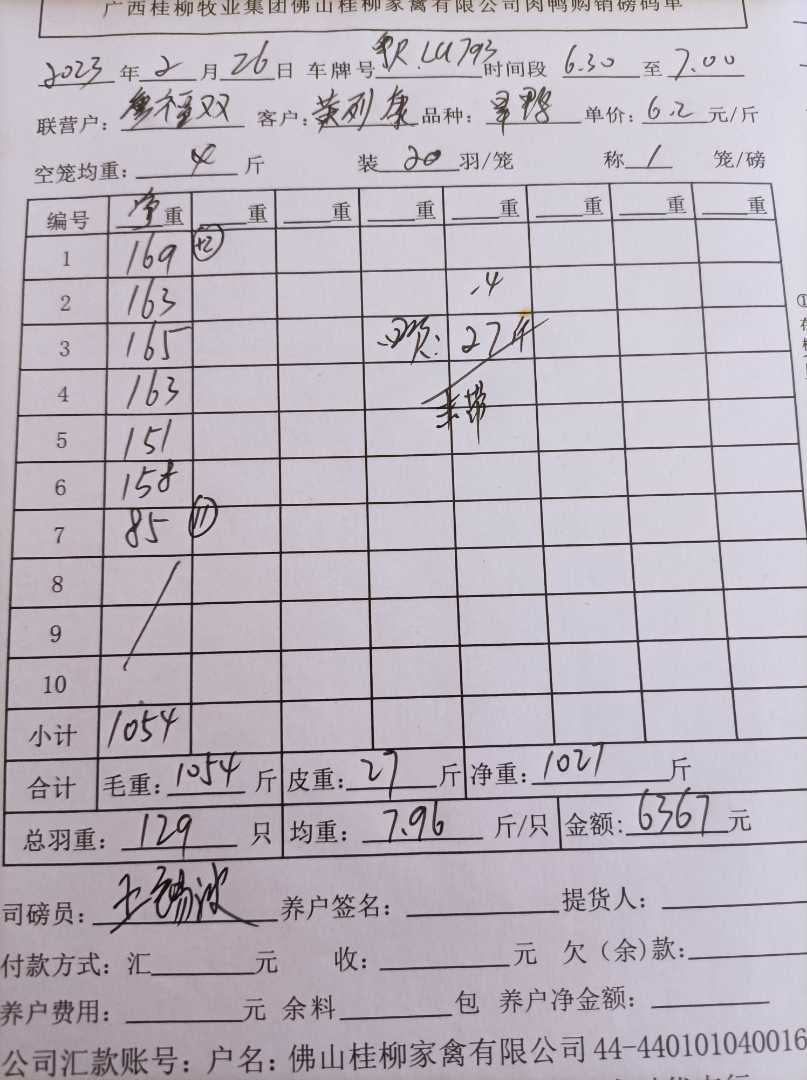 广西桂柳牧业集团佛山桂柳家禽有限公司肉鸭购销磅码单
2023 年 2 月 26 日 车牌号 LU793 时间段 6.30 至 7.00
联营户: 双 客户: 黄列康 品种: 单价: 6.2 元/斤
空笼均重: 4 斤 装 20 羽/笼 称 1 笼/磅
编号 净重 重 重 重 重 重 重 重
1 169 +2
2 163 .4
3 165 27斤
4 163
5 151
6 158
7 85 11
8
9
10
小计 1054
合计 毛重: 1054 斤 皮重: 27 斤 净重: 1027 斤
总羽重: 129 只 均重: 7.96 斤/只 金额: 6367 元
司磅员: 养户签名: 提货人:
付款方式: 汇 元 收: 元 欠(余)款:
养户费用: 元 余料 包 养户净金额:
公司汇款账号: 户名: 佛山桂柳家禽有限公司 44-440101040016